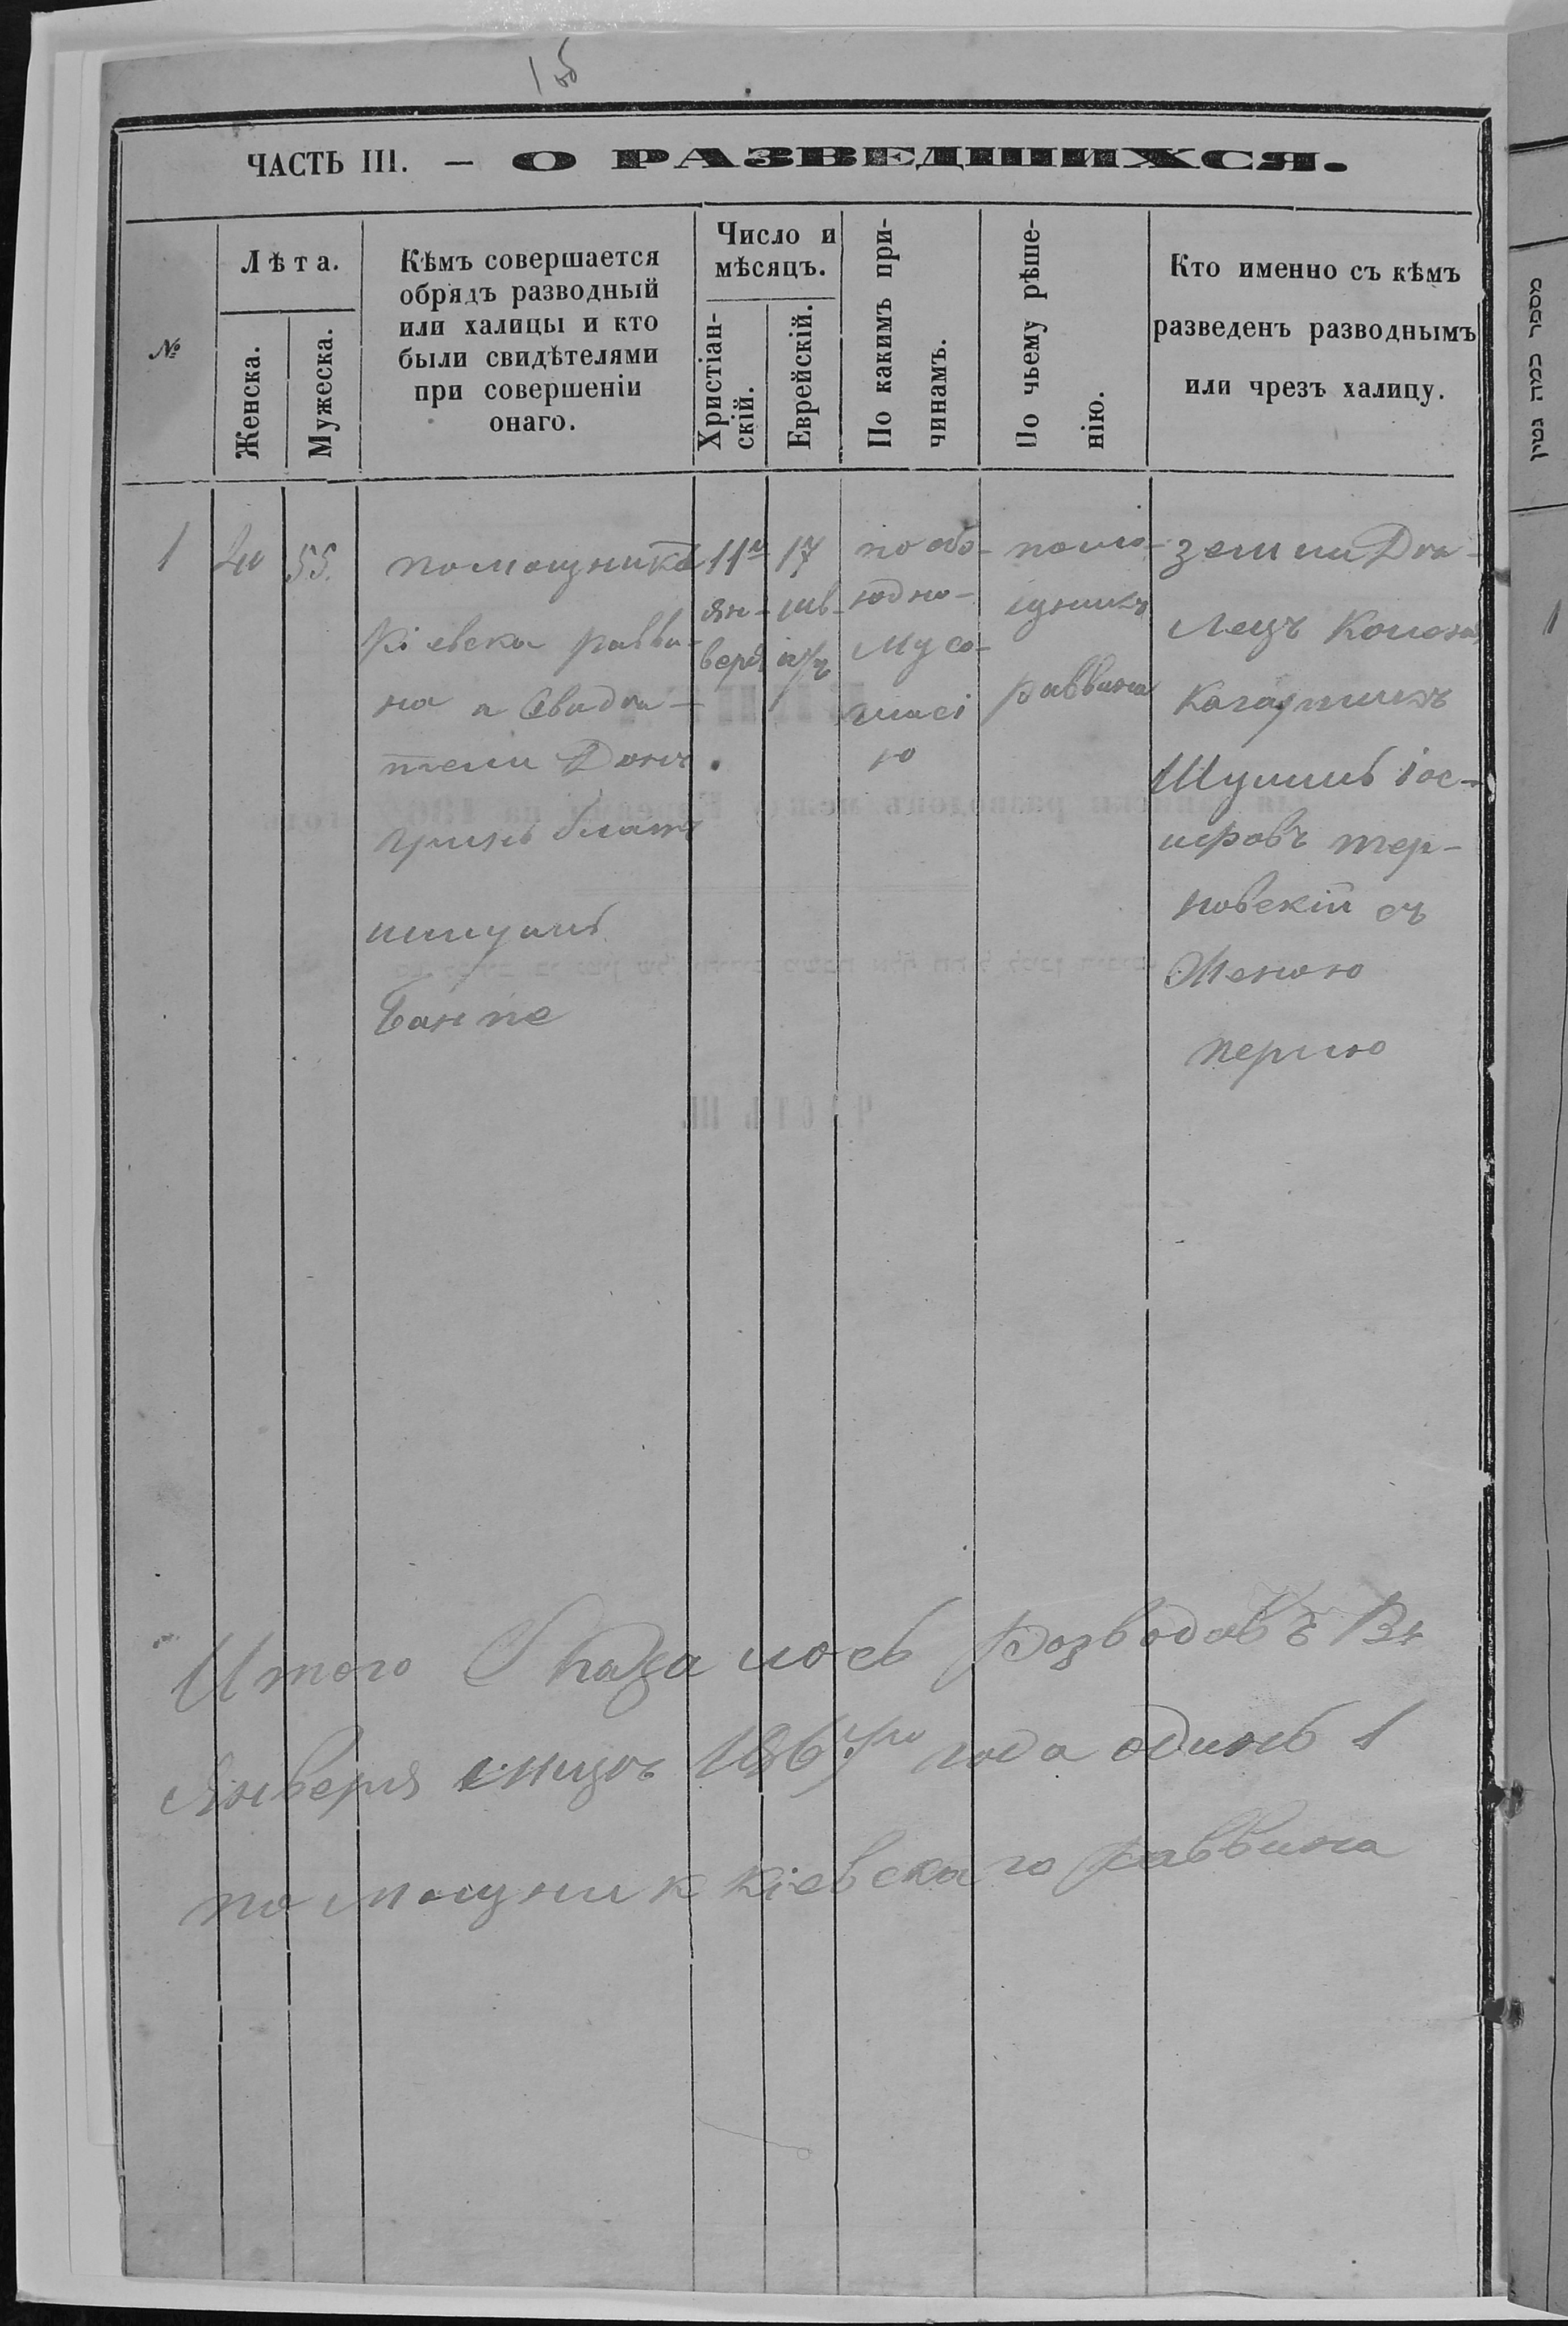 ЧАСТЬ III. — О РАЗВЕДШИХСЯ.
№
Лѣта.
Женска.
Мужеска.
Кѣмъ совершается
обрядъ разводный
или халицы и кто
были свидѣтелями
при совершеніи
онаго.
Число и
мѣсяцъ.
Христіан-
скій.
Еврейскій.
По какимъ при-
чинамъ.
По чьему рѣше-
нію.
Кто именно съ кѣмъ
разведенъ разводнымъ
или чрезъ халицу.
1
40
55.
помощника
кіевска равви-
на и Свидѣ-
тели
11
ян-
варя
17
шв-
по обо-
юдно-
му со-
гласі
ю
помо-
щникъ
раввина
землидѣ-
лецъ
Кагарликъ
іос-
ифовъ тер-
новскій съ
Женою
перлю
Итого Оказалось розводовъ Въ
Январѣ мѣцѣ 1867го года одинъ 1
помощник кіевскаго раввина
מספר כמה גטין
1